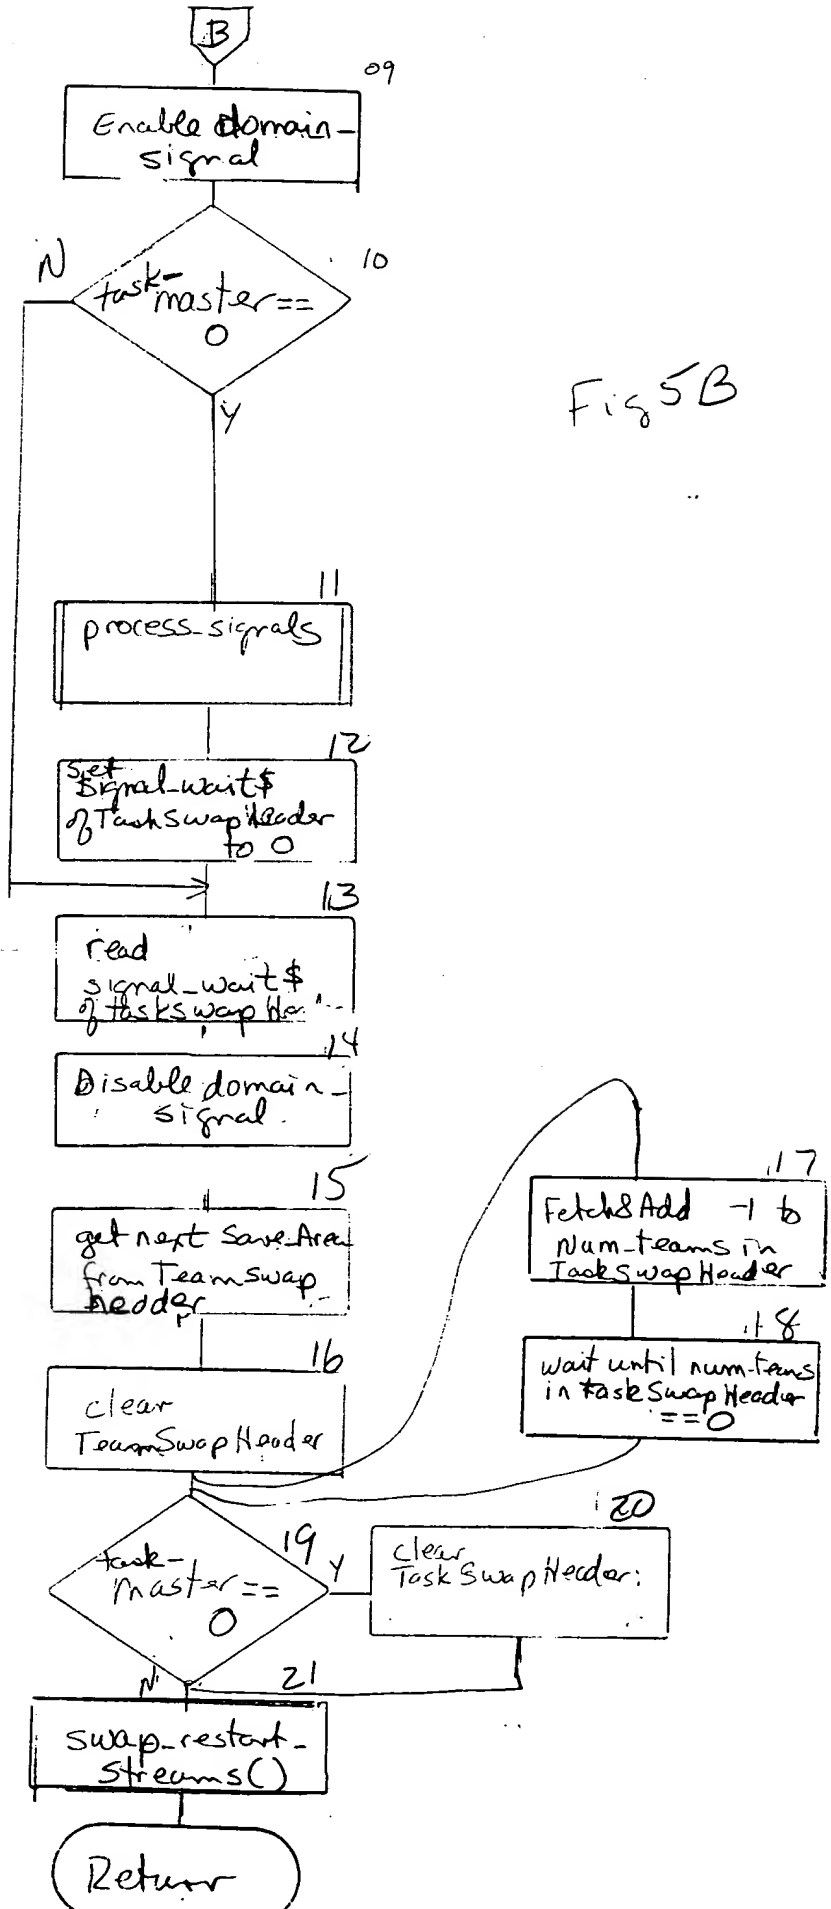 B
09
Enable domain-
signal
N
10
task-
master==
0
Y
Fig 5B
11
process_signals
12
set
signal_wait$
of TaskSwapHeader
to 0
13
read
signal_wait$
of taskSwap
14
Disable domain-
signal
15
get next Save_Area
from TeamSwap
header
16
clear
TeamSwapHeader
17
Fetch&Add -1 to
Num_teams in
TaskSwapHeader
18
wait until num_teams
in taskSwapHeader
==0
19
task-
master==
0
Y
20
clear
TaskSwapHeader
N
21
swap_restart_
streams()
Return